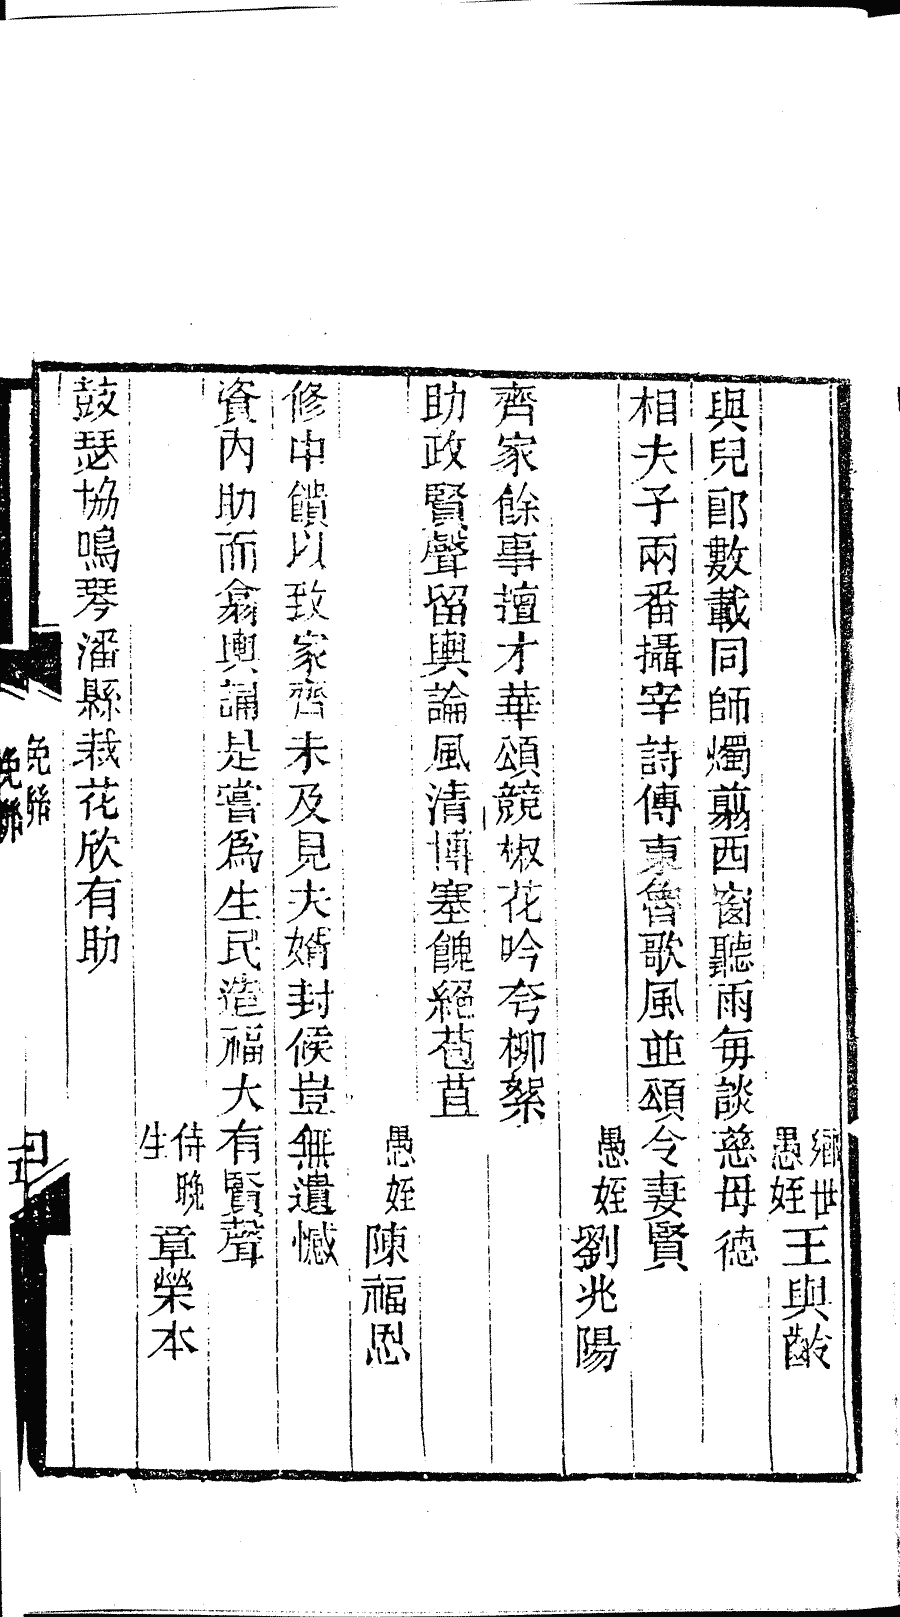 鄉世愚姪王與齡
與兒郎數載同師燭翦西窗聽雨每談慈母德
相夫子兩番攝宰詩傳東魯歌風並頌令妻賢
愚姪劉兆陽
齊家餘事擅才華頌競椒花吟夸柳絮
助政賢聲留輿論風清博塞餽絕苞苴
愚姪陳福恩
修中饋以致家齊未及見夫婿封候豈無遺憾
資內助而翕輿誦是嘗為生民造福大有賢聲
侍晚生章榮本
鼓瑟協鳴琴潘縣栽花欣有助
挽聯